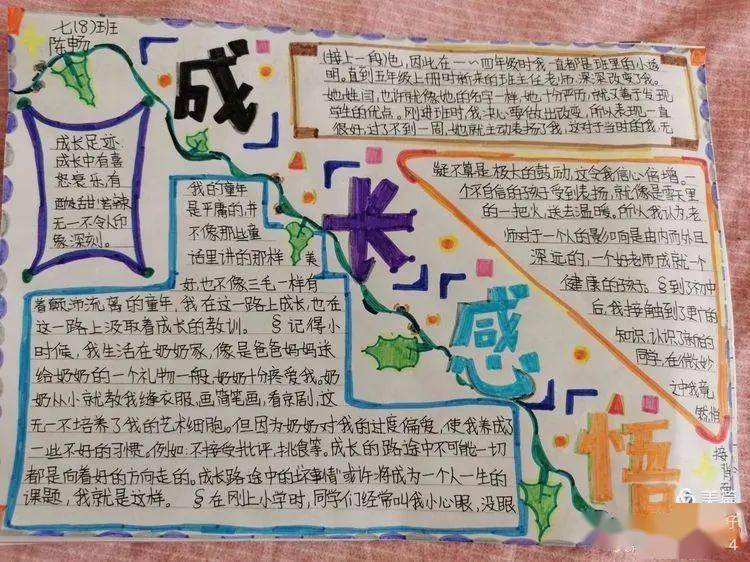 七(8)班
陈畅
成
长
感
悟
成长足迹:
成长中有喜
怒哀乐,有
酸甜苦辣
无一不令人印
象深刻。
我的童年
是平庸的,并
不像那些童
话里讲的那样 美
好,也不像三毛一样有
着颠沛流离的童年,我在这一路上成长,也在
这一路上汲取着成长的教训。 §记得小
时候,我生活在奶奶家,像是爸爸妈妈送
给奶奶的一个礼物一般,奶奶十分疼爱我。奶
奶从小就教我缝衣服,画简笔画,看京剧,这
无一不培养了我的艺术细胞。但因为奶奶对我的过度偏爱,使我养成了
一些不好的习惯。例如:不接受批评,挑食等。成长的路途中不可能一切
都是向着好的方向走的。成长路途中的“坏事情”或许将成为一个人一生的
课题,我就是这样。 §在刚上小学时,同学们经常叫我小心眼,没眼
(接上一段)色,因此在一~四年级时我一直都是班里的小透
明。直到五年级上册时新来的班主任老师,深深改变了我。
她姓闫,也许就像她的名字一样,她十分严厉,就又善于发现
学生的优点。刚进班时,我决心要做出改变,所以表现一直
很好,过了不到一周,她就主动表扬了我,这对于当时的我,无
疑不算是极大的鼓励,这令我信心倍增。一
个不自信的孩子受到表扬,就像是雪天里
的一把火,送去温暖。所以我认为,老
师对于一个人的影响是由内而外且
深远的,一个好老师成就一个
健康的孩子。§到了初中
后,我接触到了更忙的
知识,认识了崭新的
同学,在微妙
之中我竟
然悄
接背面
美篇